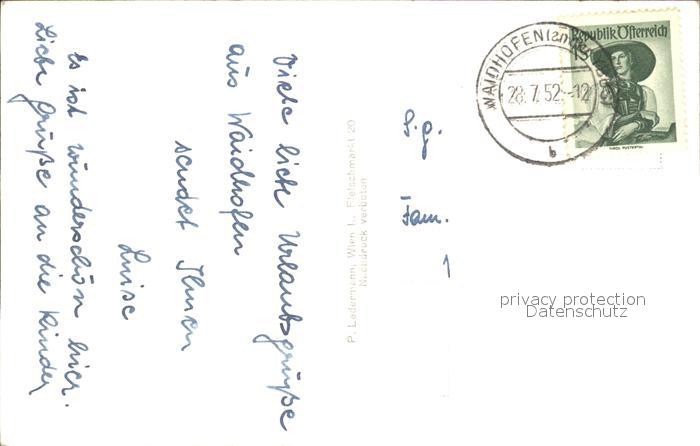 Viele liebe Urlaubsgrüße
aus Waidhofen
sendet Ihnen
Luise
Es ist wunderschön hier.
Liebe Grüße an die Kinder
P. Ledermann, Wien I., Fleischmarkt 20
Nachdruck verboten
S.g.
Fam.
1
WAIDHOFEN
28.7.52.-12
b
Republik Österreich
TIROL PUSTERTAL
privacy protection
Datenschutz